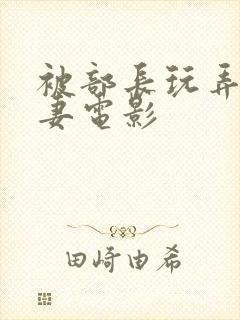 被部長玩弄
妻電影
田崎由希